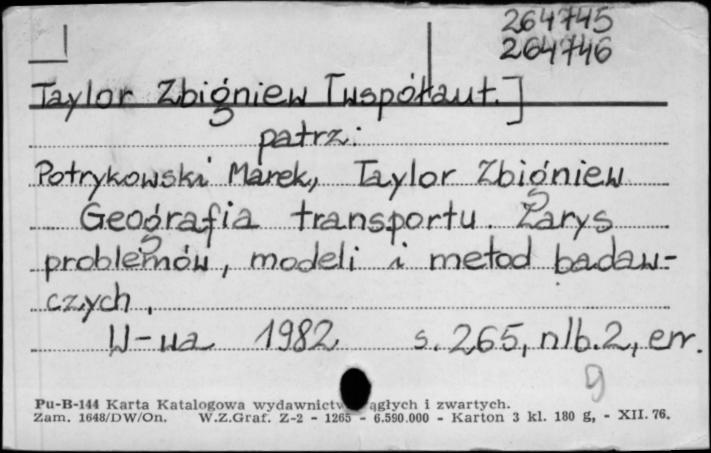 264745
264746
Taylor Zbigniew [współaut.]
patrz:
Potrykowski Marek, Taylor Zbigniew
Geografia transportu. Zarys
problemów, modeli i metod badaw-
czych.
W-wa 1982 s. 265, nlb. 2, err.
9
Pu-B-144 Karta Katalogowa i zwartych.
Zam. 1648/DW/On. W.Z.Graf. Z-2 - 1265 - 6.590.000 - Karton 3 kl. 180 g, - XII. 76.